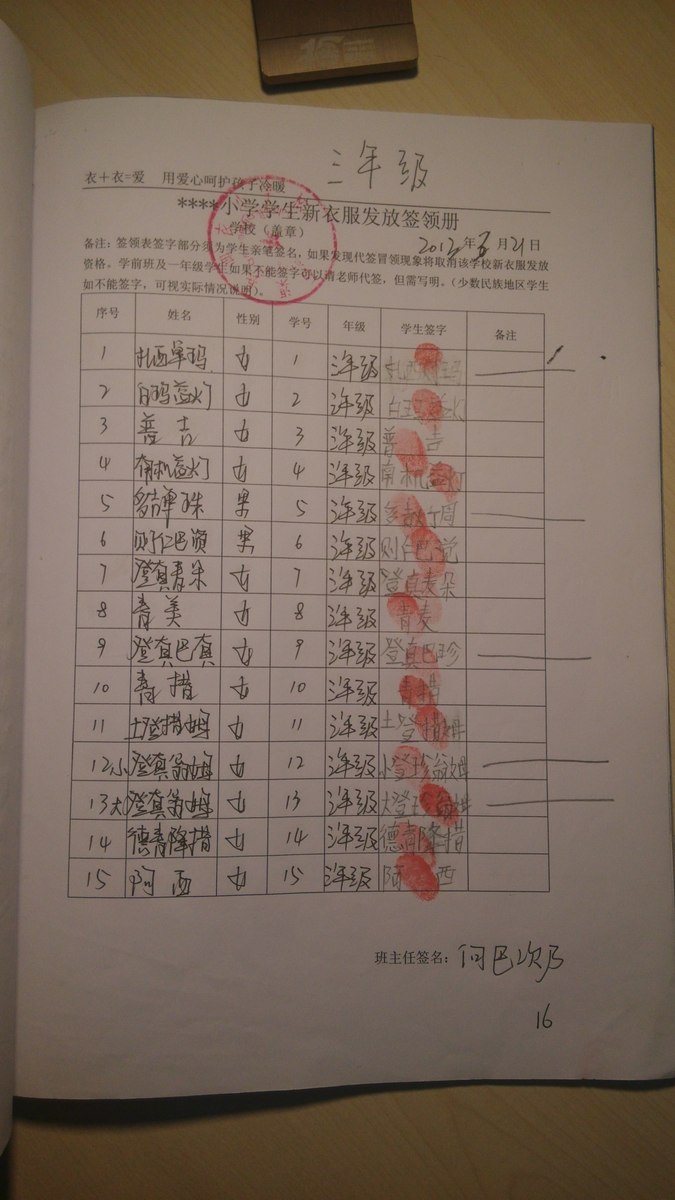 三年级
衣＋衣=爱 用爱心呵护孩子冷暖
****小学学生新衣服发放签领册
学校（盖章） 2012年5月21日
备注：签领表签字部分须为学生亲笔签名，如果发现代签冒领现象将取消该学校新衣服发放
资格。学前班及一年级学生如果不能签字可以请老师代签，但需写明。（少数民族地区学生
如不能签字，可视实际情况说明）。
序号 姓名 性别 学号 年级 学生签字 备注
1 扎西单玛 女 1 三年级 扎西 玛
2 白玛益灯 女 2 三年级 白玛益灯
3 普吉 女 3 三年级 普吉
4 南机益灯 女 4 三年级 南机益灯
5 男 5 三年级
6 则仁巴 男 6 三年级 则仁巴
7 登真青朵 女 7 三年级 登真青朵
8 青美 女 8 三年级 青麦
9 登真巴真 女 9 三年级 登真巴珍
10 青措 女 10 三年级 青措
11 土登措姆 女 11 三年级 土登措姆
12 小登真翁姆 女 12 三年级 小登珍翁姆
13 大登真翁姆 女 13 三年级 大登珍翁姆
14 德青降措 女 14 三年级 德青降措
15 阿西 女 15 三年级 阿西
班主任签名：何巴次乃
16